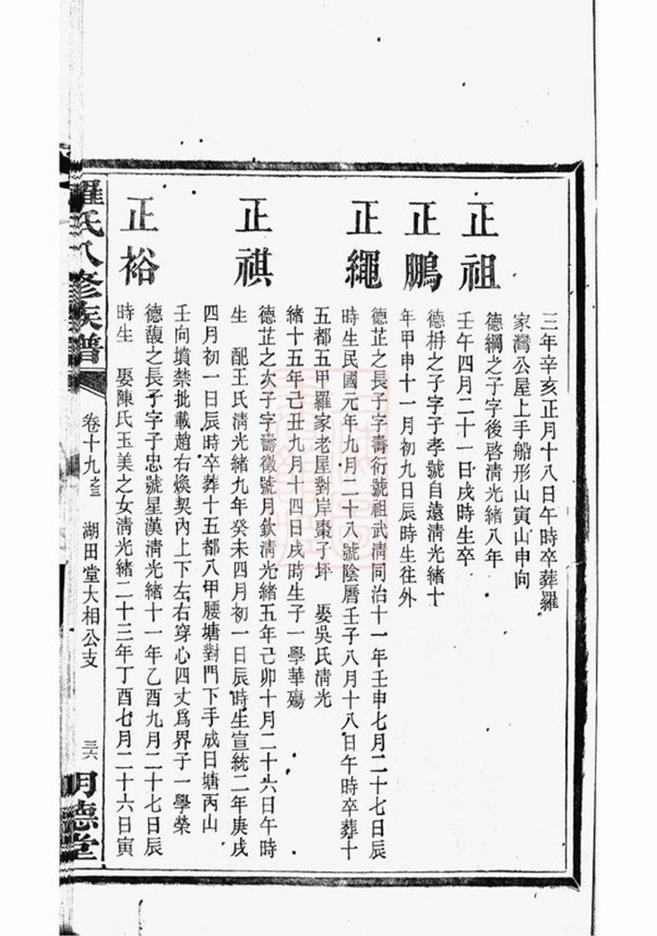 三年辛亥正月十八日午時卒葬羅
家灣公屋上手船形山寅山申向
正祖
德綱之子字後啓清光緒八年
壬午四月二十一日戌時生卒
正鵬
德枬之子字子孝號自遠清光緒十
年甲申十一月初九日辰時生往外
正繩
德芷之長子字壽衍號祖武清同治十一年壬申七月二十七日辰
時生民國元年九月二十八號陰曆壬子八月十八日午時卒葬十
五都五甲羅家老屋對岸棗子坪 娶吳氏清光
緒十五年己丑九月十四日戌時生子一學華殤
正祺
德芷之次子字壽徵號月欽清光緒五年己卯十月二十六日午時
生 配王氏清光緒九年癸未四月初一日辰時生宣統二年庚戌
四月初一日辰時卒葬十五都八甲腰塘對門下手成日塘丙山
壬向墳禁批載趙右煥契內上下左右穿心四丈爲界子一學榮
正裕
德馥之長子字子忠號星漢清光緒十一年乙酉九月二十七日辰
時生 娶陳氏玉美之女清光緒二十三年丁酉七月二十六日寅
羅氏八修族譜
卷十九之三 湖田堂大相公支
三六
明德堂